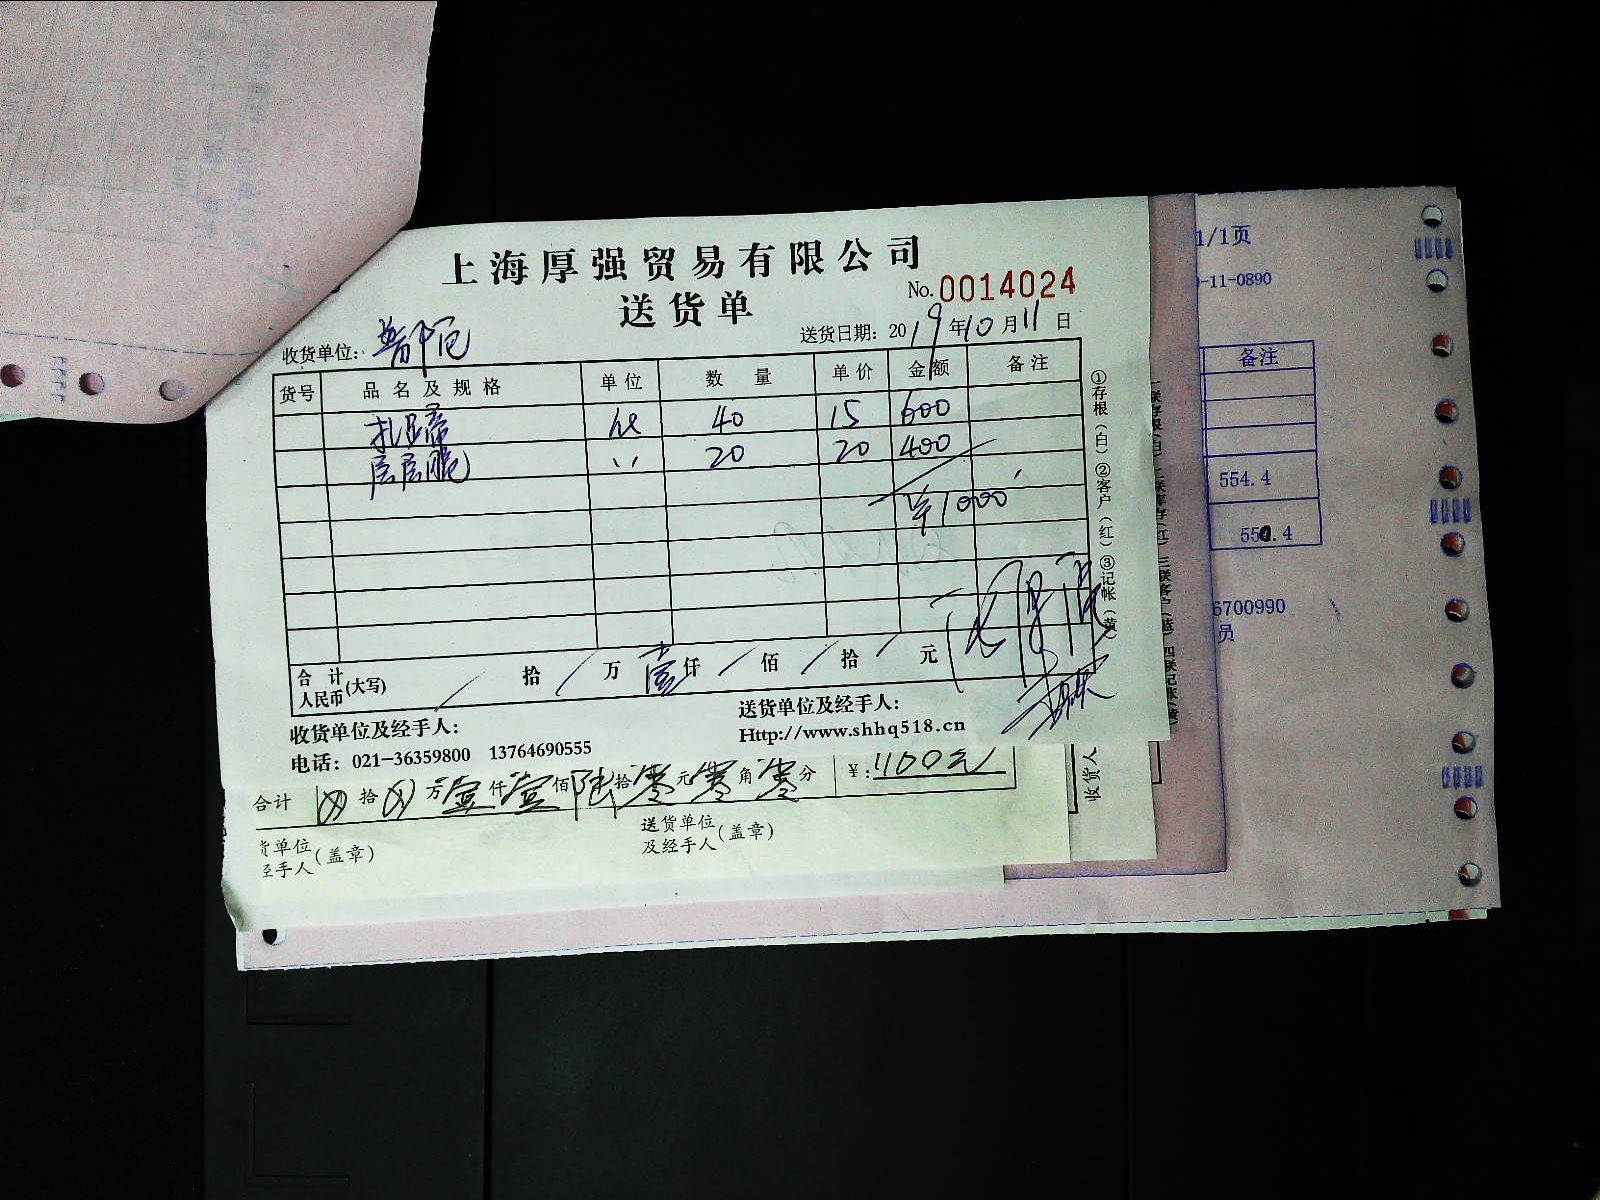 上海厚强贸易有限公司
送货单
No. 0014024
收货单位:
送货日期: 2019年10月11日
货号 品名及规格 单位 数量 单价 金额 备注
40 15 600
层层脆 〃 20 20 400
¥1000
合计人民币(大写) 拾 万 壹仟 佰 拾 元
收货单位及经手人:
送货单位及经手人:
电话: 021-36359800 13764690555
Http://www.shhq518.cn
①存根(白)②客户(红)③记帐(黄)
合计 拾 万壹仟壹佰陆拾零元零角零分 ¥: 1160元
货单位
经手人(盖章)
送货单位
及经手人(盖章)
收货人
1/1页
-11-0890
备注
554.4
550.4
6700990
员